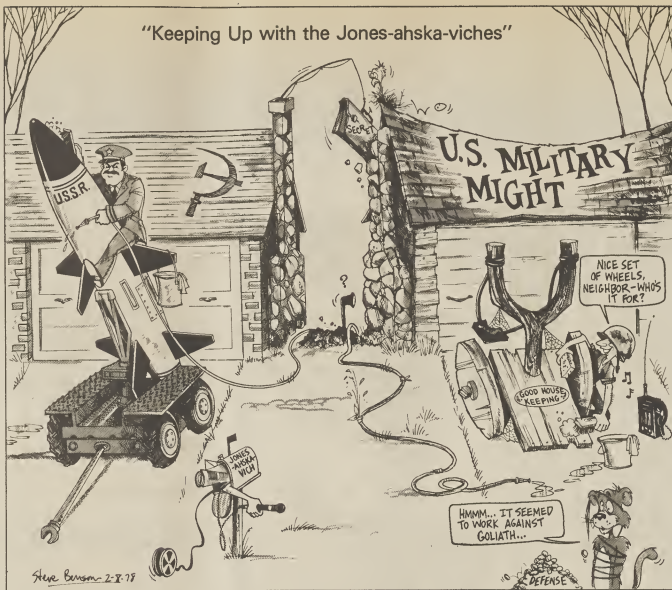 "Keeping Up with the Jones-ahska-viches"
U.S.S.R.
SECRET
U.S. MILITARY
MIGHT
?
NICE SET
OF WHEELS,
NEIGHBOR-WHO'S
IT FOR?
GOOD HOUSE
KEEPING
JONES
-AHSKA-
VICH
HMMM... IT SEEMED
TO WORK AGAINST
GOLIATH...
DEFENSE
Steve Benson 2-8-78